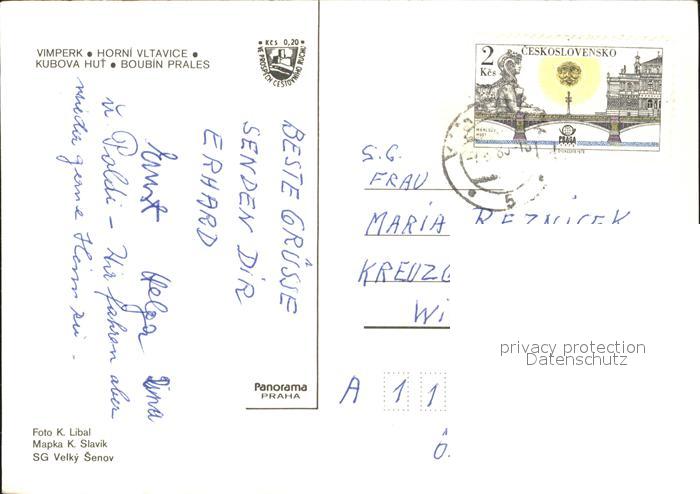 VIMPERK • HORNÍ VLTAVICE •
KUBOVA HUŤ • BOUBÍN PRALES
• Kčs 0,20 •
VE PROSPĚCH CESTOVNÍHO RUCHU
ČESKOSLOVENSKO
2
Kčs
PRAGA
BESTE GRÜSSE
SENDEN DIR
ERHARD
Ernst Helga
u Poldi – Wir fahren aber
wieder gerne
G.G.
FRAU
MARIA REZNICEK
KREUZG
WI
A 11
Ö.
privacy protection
Datenschutz
Panorama
PRAHA
Foto K. Libal
Mapka K. Slavík
SG Velký Šenov